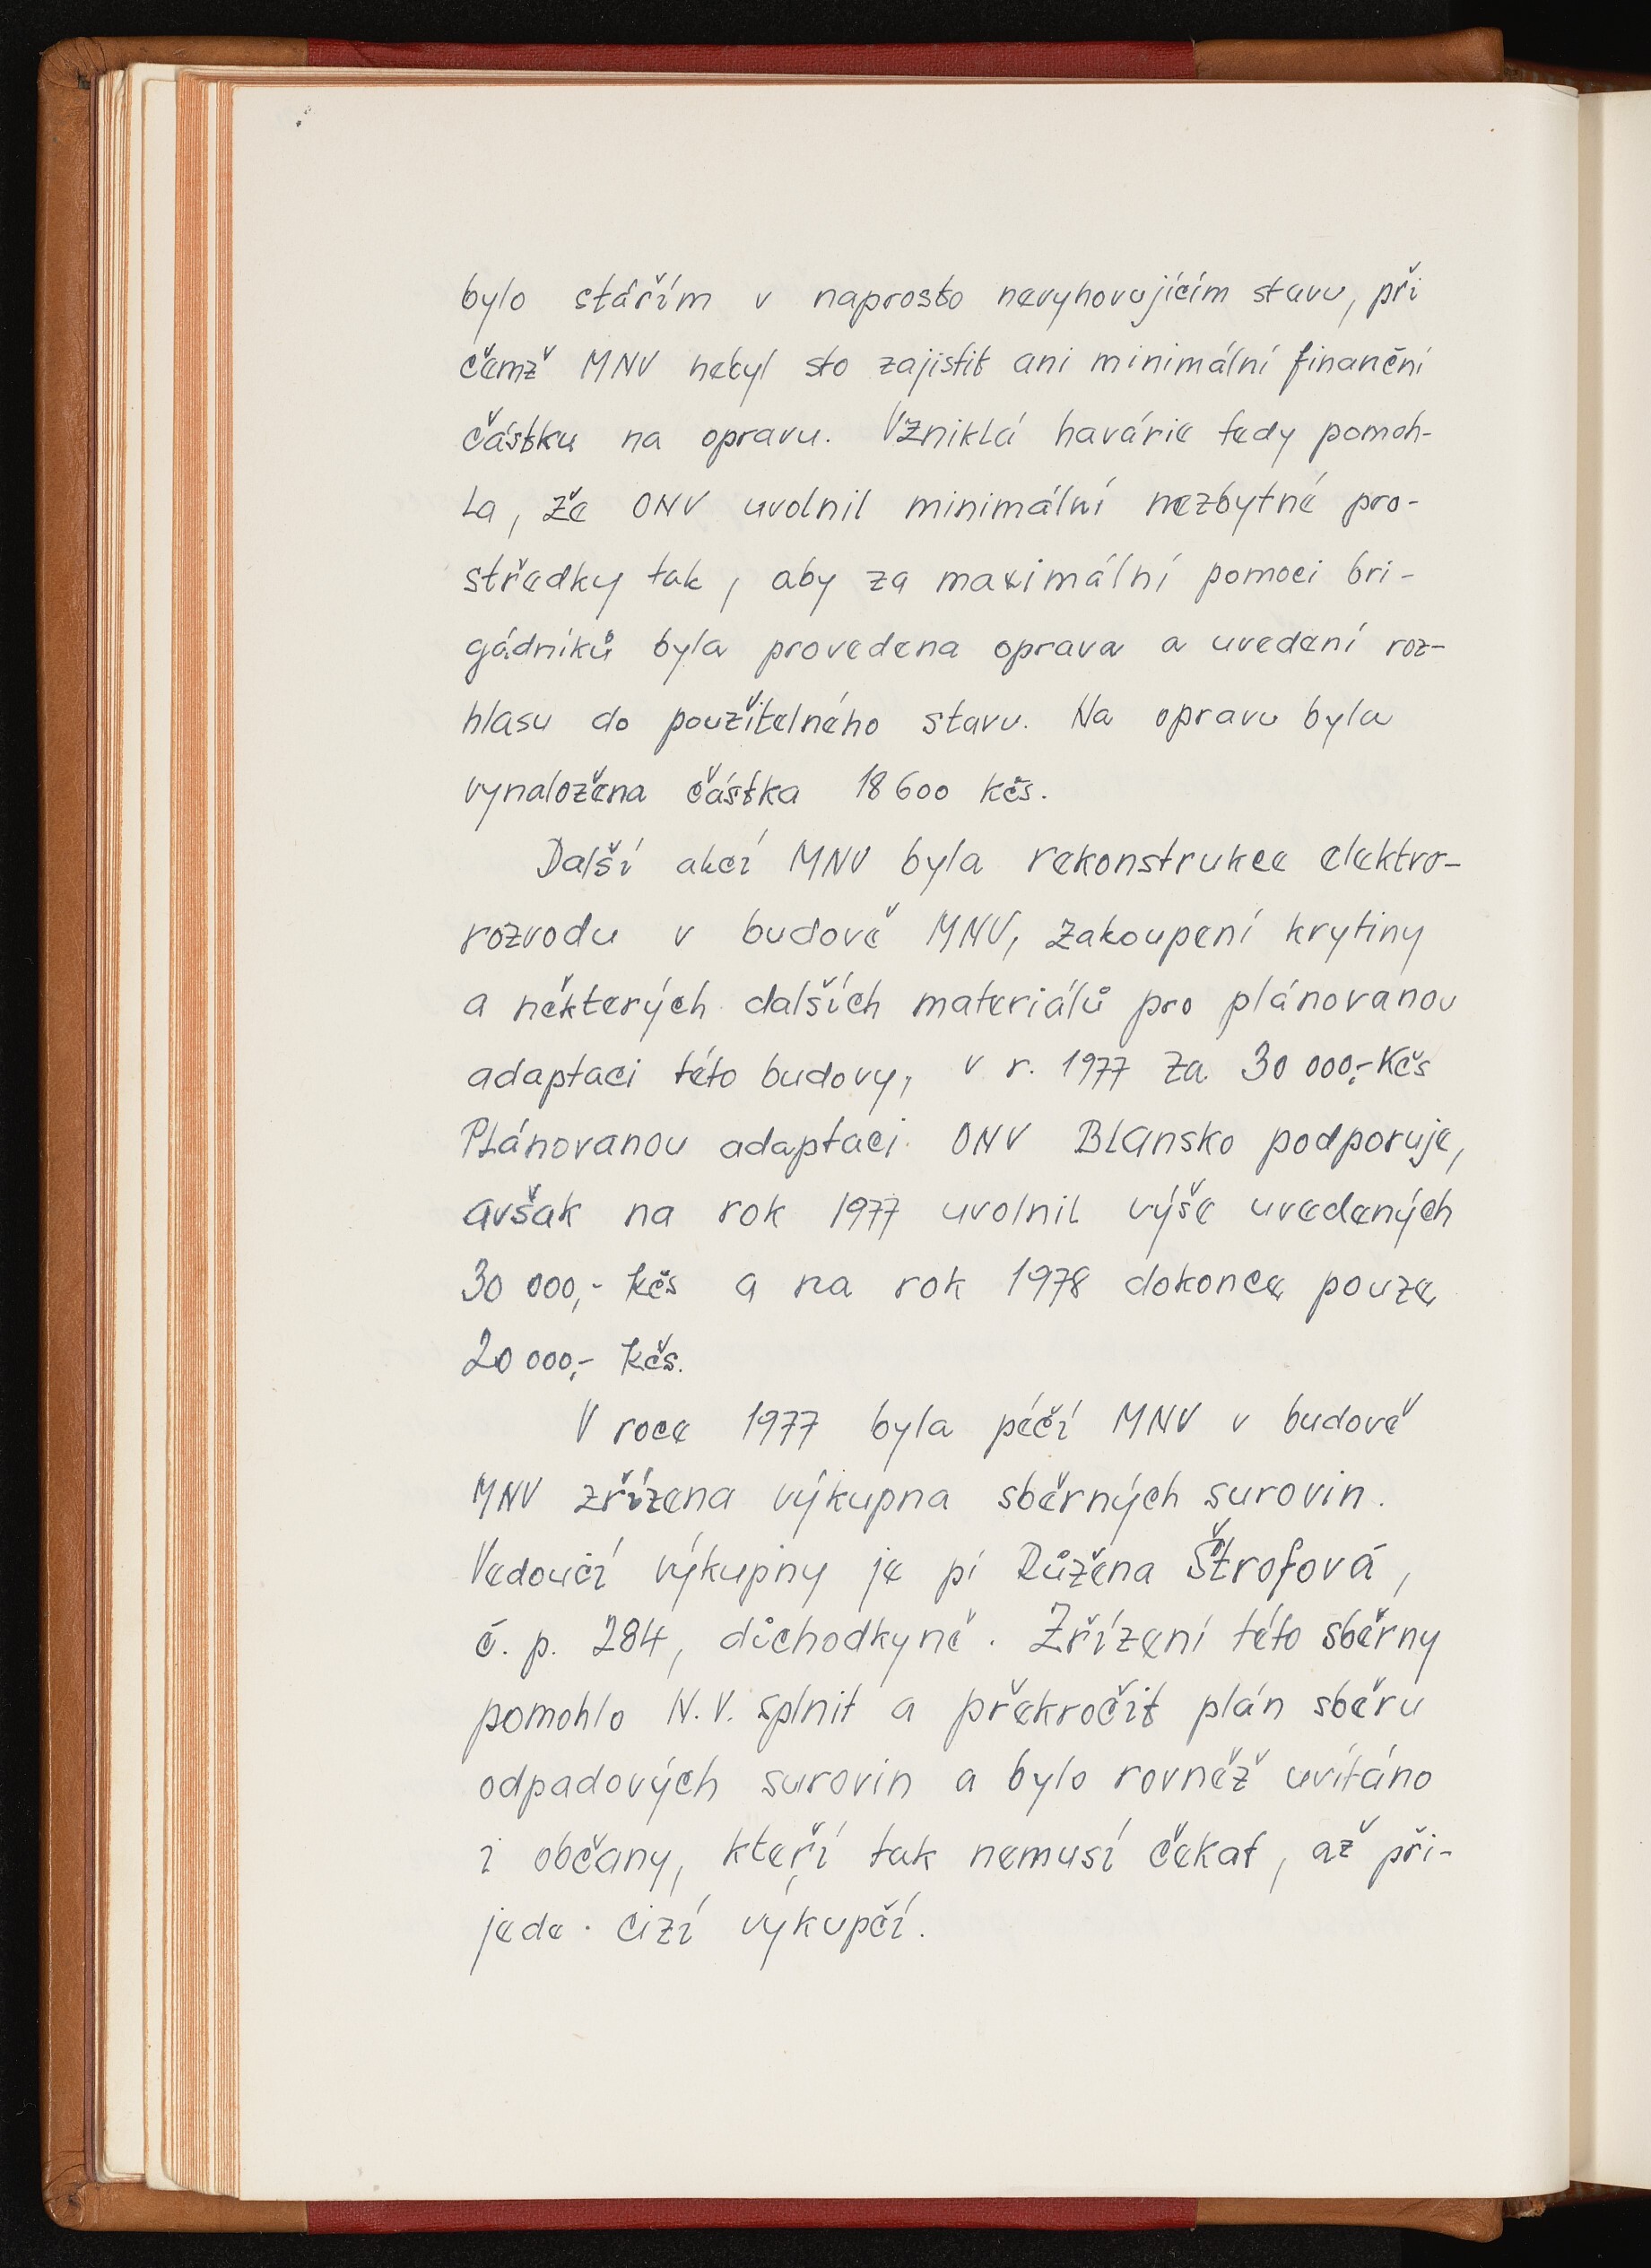 bylo stářím v naprosto nevyhovujícím stavu, při
čemž MNV nebyl sto zajistit ani minimální finanční
částku na opravu. Vzniklá havárie tedy pomoh-
la, že ONV uvolnil minimální nezbytné pro-
středky tak, aby za maximální pomoci bri-
gádníků byla provedena oprava a uvedení roz-
hlasu do použitelného stavu. Na opravu byla
vynaložena částka 18 600 kčs.
Další akcí MNV byla rekonstrukce elektro-
rozvodu v budově MNV, zakoupení krytiny
a některých dalších materiálů pro plánovanou
adaptaci této budovy, v r. 1977 za 30 000,- Kčs
Plánovanou adaptaci ONV Blansko podporuje,
avšak na rok 1977 uvolnil výše uvedených
30 000,- kčs a na rok 1978 dokonce pouze
20 000,- kčs.
V roce 1977 byla péčí MNV v budově
MNV zřízena výkupna sběrných surovin.
Vedoucí výkupny je pí Růžena Štrofová,
č. p. 284, důchodkyně. Zřízení této sběrny
pomohlo N.V. splnit a překročit plán sběru
odpadových surovin a bylo rovněž uvítáno
i občany, kteří tak nemusí čekat, až při-
jede cizí výkupčí.